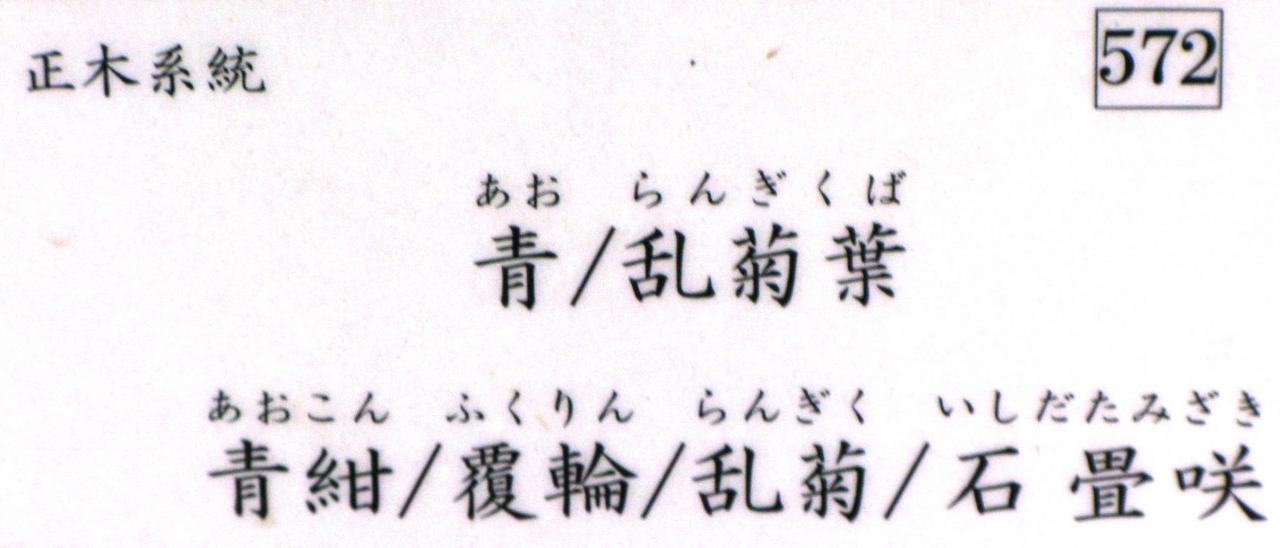 正木系統 572
あお らんぎくば
青/乱菊葉
あおこん ふくりん らんぎく いしだたみざき
青紺/覆輪/乱菊/石畳咲